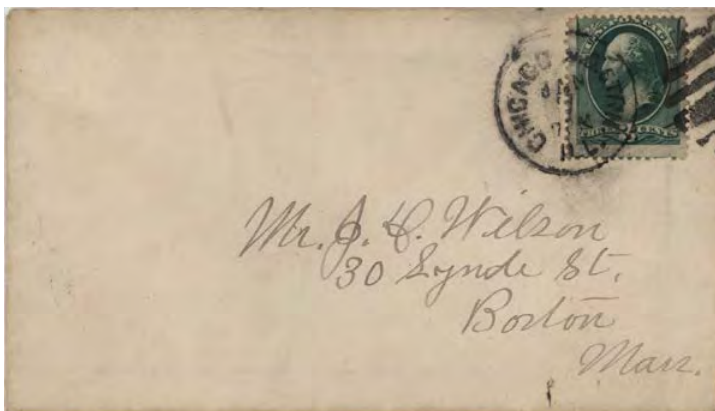 CHICAGO
ILL.
THREE CENTS
Mr. J. H. Wilson
30 Lynde St.
Boston
Mass.